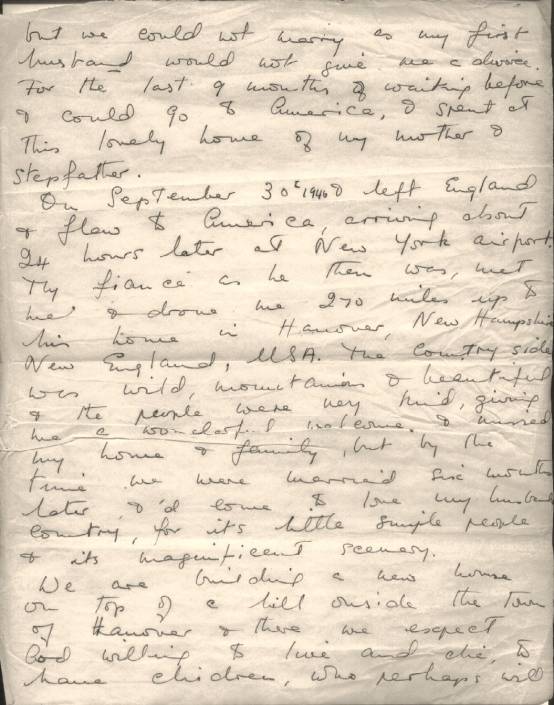 but we could not marry as my first
husband would not give me a divorce.
For the last 9 months of waiting before
I could go to America, I spent at
this lovely home of my mother &
stepfather.
On September 30t 1946 I left England
& flew to America, arriving about
24 hours later at New York airport.
My fiancé as he then was, met
me & drove me 270 miles up to
his home in Hanover, New Hampshire
New England, USA. The country side
was wild, mountainous & beautiful
& the people were very kind, giving
me a wonderful welcome. I missed
my home & family, but by the
time we were married six months
later, I'd come to love my husband
country, for it's little simple people
& its magnificent scenery.
We are building a new house
on top of a hill outside the town
of Hanover & there we expect
God willing to live and die, to
have children, who perhaps will